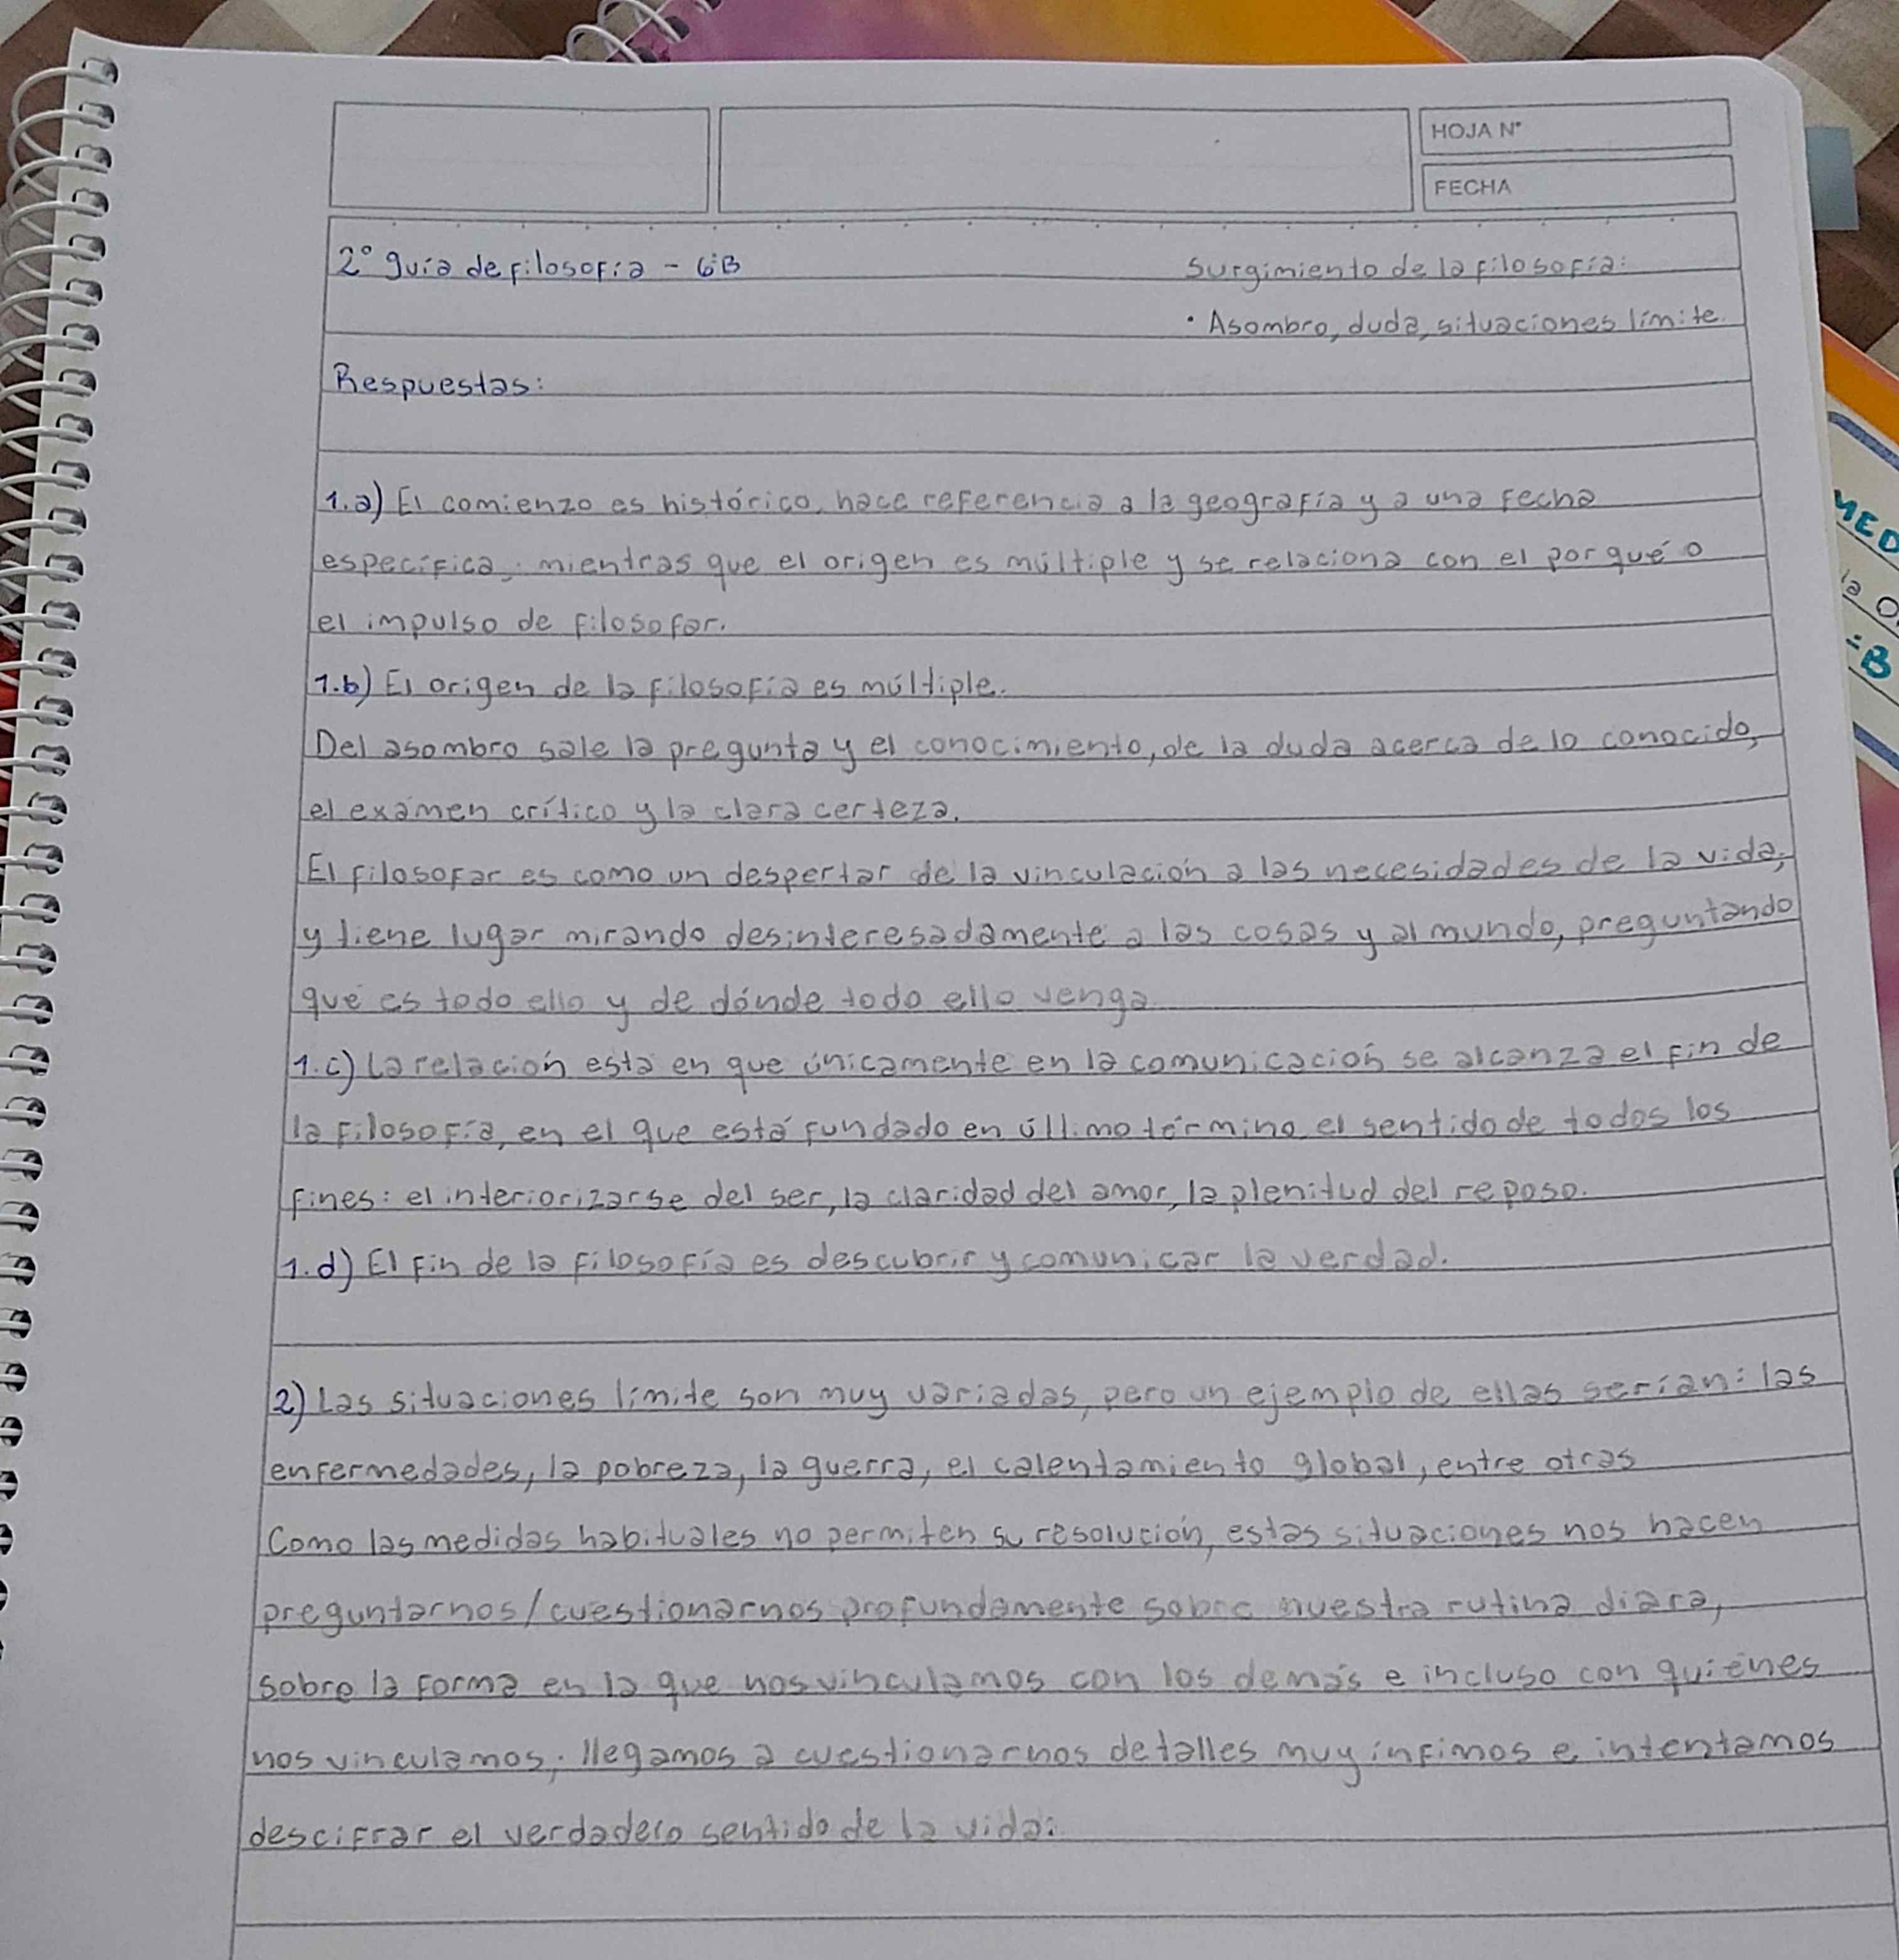 HOJA N°
FECHA
2° guía de filosofía - 6°B
Surgimiento de la filosofía:
• Asombro, duda, situaciones límite.
Respuestas:
1.a) El comienzo es histórico, hace referencia a la geografía y a una fecha
específica, mientras que el origen es múltiple y se relaciona con el por qué o
el impulso de filosofar.
1.b) El origen de la filosofía es múltiple.
Del asombro sale la pregunta y el conocimiento, de la duda acerca de lo conocido,
el exámen crítico y la clara certeza.
El filosofar es como un despertar de la vinculación a las necesidades de la vida,
y tiene lugar mirando desinteresadamente a las cosas y al mundo, preguntando
qué es todo ello y de dónde todo ello venga.
1.c) La relación está en que únicamente en la comunicación se alcanza el fin de
la filosofía, en el que está fundado en último término el sentido de todos los
fines: el interiorizarse del ser, la claridad del amor, la plenitud del reposo.
1.d) El fin de la filosofía es descubrir y comunicar la verdad.
2) Las situaciones límite son muy variadas, pero un ejemplo de ellas serían: las
enfermedades, la pobreza, la guerra, el calentamiento global, entre otras
Como las medidas habituales no permiten su resolución, estas situaciones nos hacen
preguntarnos/cuestionarnos profundamente sobre nuestra rutina diara,
sobre la forma en la que nos vinculamos con los demás e incluso con quiénes
nos vinculamos; llegamos a cuestionarnos detalles muy ínfimos e intentamos
descifrar el verdadero sentido de la vida.
MED
la
B